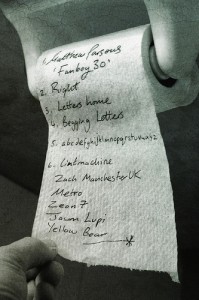 1. Matthew Parsons
'Fanboy 30'
2. Right
3. Letters home
4. Begging Letters
5. abcdefghijklmnopqrstuvwxyz
6. Cutmachine
Zach Manchester UK
Metro
Zean 7
Jason Lupi
Yellow Bear